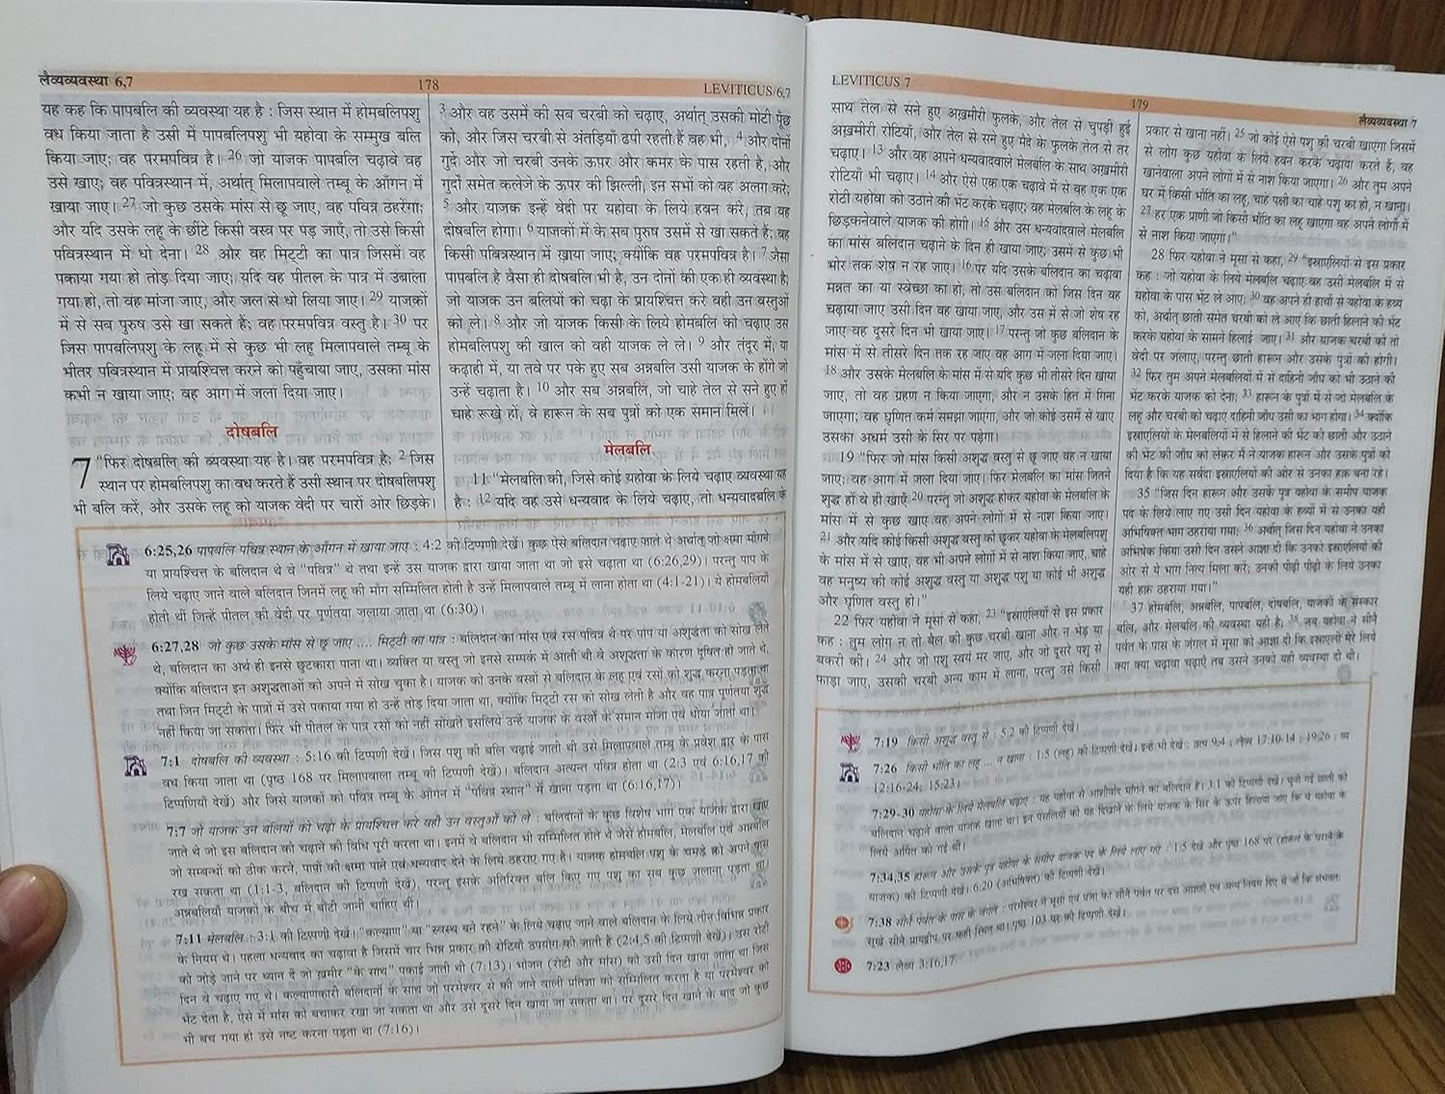 लैव्यव्यवस्था 6,7
178
LEVITICUS 6,7
यह कह कि पापबलि की व्यवस्था यह है : जिस स्थान में होमबलिपशु
वध किया जाता है उसी में पापबलिपशु भी यहोवा के सम्मुख बलि
किया जाए; वह परमपवित्र है। 26 जो याजक पापबलि चढ़ावे वह
उसे खाए; वह पवित्रस्थान में, अर्थात् मिलापवाले तम्बू के आँगन में
खाया जाए। 27 जो कुछ उसके मांस से छू जाए, वह पवित्र ठहरेगा;
और यदि उसके लहू के छींटे किसी वस्त्र पर पड़ जाएँ, तो उसे किसी
पवित्रस्थान में धो देना। 28 और वह मिट्टी का पात्र जिसमें वह
पकाया गया हो तोड़ दिया जाए; यदि वह पीतल के पात्र में उबाला
गया हो, तो वह मांजा जाए, और जल से धो लिया जाए। 29 याजकों
में से सब पुरुष उसे खा सकते हैं; वह परमपवित्र वस्तु है। 30 पर
जिस पापबलिपशु के लहू में से कुछ भी लहू मिलापवाले तम्बू के
भीतर पवित्रस्थान में प्रायश्चित्त करने को पहुँचाया जाए, उसका मांस
कभी न खाया जाए; वह आग में जला दिया जाए।
दोषबलि
7 “फिर दोषबलि की व्यवस्था यह है। वह परमपवित्र है; 2 जिस
स्थान पर होमबलिपशु का वध करते हैं उसी स्थान पर दोषबलिपशु
भी बलि करें, और उसके लहू को याजक वेदी पर चारों ओर छिड़के।
3 और वह उसमें की सब चरबी को चढ़ाए, अर्थात् उसकी मोटी पूँछ
को, और जिस चरबी से अंतड़ियाँ ढपी रहती हैं वह भी, 4 और दोनों
गुर्दे और जो चरबी उनके ऊपर और कमर के पास रहती है, और
गुर्दों समेत कलेजे के ऊपर की झिल्ली, इन सभों को वह अलग करे;
5 और याजक इन्हें वेदी पर यहोवा के लिये हवन करे; तब वह
दोषबलि होगा। 6 याजकों में के सब पुरुष उसमें से खा सकते हैं; वह
किसी पवित्रस्थान में खाया जाए; क्योंकि वह परमपवित्र है। 7 जैसा
पापबलि है वैसा ही दोषबलि भी है, उन दोनों की एक ही व्यवस्था है;
जो याजक उन बलियों को चढ़ा के प्रायश्चित्त करे वही उन वस्तुओं
को ले। 8 और जो याजक किसी के लिये होमबलि को चढ़ाए उस
होमबलिपशु की खाल को वही याजक ले ले। 9 और तंदूर में, या
कढ़ाही में, या तवे पर पके हुए सब अन्नबलि उसी याजक के होंगे जो
उन्हें चढ़ाता है। 10 और सब अन्नबलि, जो चाहे तेल से सने हुए हों
चाहे रूखे हों, वे हारून के सब पुत्रों को एक समान मिलें।
मेलबलि
11 “मेलबलि की, जिसे कोई यहोवा के लिये चढ़ाए व्यवस्था यह
है : 12 यदि वह उसे धन्यवाद के लिये चढ़ाए, तो धन्यवादबलि के
6:25,26 पापबलि पवित्र स्थान के आँगन में खाया जाए : 4:2 की टिप्पणी देखें। कुछ ऐसे बलिदान चढ़ाए जाते थे अर्थात् जो क्षमा माँगने
या प्रायश्चित्त के बलिदान थे वे “पवित्र” थे तथा इन्हें उस याजक द्वारा खाया जाता था जो इसे चढ़ाता था (6:26,29)। परन्तु पाप के
लिये चढ़ाए जाने वाले बलिदान जिनमें लहू की माँग सम्मिलित होती है उन्हें मिलापवाले तम्बू में लाना होता था (4:1-21)। ये होमबलियाँ
होती थीं जिन्हें पीतल की वेदी पर पूर्णतया जलाया जाता था (6:30)।
6:27,28 जो कुछ उसके मांस से छू जाए .... मिट्टी का पात्र : बलिदान का मांस एवं रस पवित्र थे पर पाप या अशुद्धता को सोख लेते
थे, बलिदान का अर्थ ही इनसे छुटकारा पाना था। व्यक्ति या वस्तु जो इनसे सम्पर्क में आती थी वे अशुद्धता के कारण दूषित हो जाते थे,
क्योंकि बलिदान इन अशुद्धताओं को अपने में सोख चुका है। याजक को उनके वस्त्रों से बलिदान के लहू एवं रसों को शुद्ध करना पड़ता था
तथा जिन मिट्टी के पात्रों में उसे पकाया गया हो उन्हें तोड़ दिया जाता था, क्योंकि मिट्टी रस को सोख लेती है और वह पात्र पूर्णतया शुद्ध
नहीं किया जा सकता। फिर भी पीतल के पात्र रसों को नहीं सोखते इसलिये उन्हें याजक के वस्त्रों के समान मांजा एवं धोया जाता था।
7:1 दोषबलि की व्यवस्था : 5:16 की टिप्पणी देखें। जिस पशु की बलि चढ़ाई जाती थी उसे मिलापवाले तम्बू के प्रवेश द्वार के पास
वध किया जाता था (पृष्ठ 168 पर मिलापवाला तम्बू की टिप्पणी देखें)। बलिदान अत्यन्त पवित्र होता था (2:3 एवं 6:16,17 की
टिप्पणियाँ देखें) और जिसे याजकों को पवित्र तम्बू के आँगन में “पवित्र स्थान” में खाना पड़ता था (6:16,17)।
7:7 जो याजक उन बलियों को चढ़ा के प्रायश्चित्त करे वही उन वस्तुओं को ले : बलिदानों के कुछ विशेष भाग एक याजक द्वारा खाए
जाते थे जो इस बलिदान को चढ़ाने की विधि पूरी करता था। इनमें वे बलिदान भी सम्मिलित होते थे जैसे होमबलि, मेलबलि एवं अन्नबलि
जो सम्बन्धों को ठीक करने, पापों की क्षमा पाने एवं धन्यवाद देने के लिये ठहराए गए हैं। याजक होमबलि पशु के चमड़े को अपने पास
रख सकता था (1:1-3, बलिदान की टिप्पणी देखें), परन्तु इसके अतिरिक्त बलि किए गए पशु का सब कुछ जलाना पड़ता था।
अन्नबलियाँ याजकों के बीच में बाँटी जानी चाहिए थीं।
7:11 मेलबलि : 3:1 की टिप्पणी देखें। “कल्याण” या “स्वस्थ बने रहने” के लिये चढ़ाए जाने वाले बलिदान के लिये तीन विभिन्न प्रकार
के नियम थे। पहला धन्यवाद का चढ़ावा है जिसमें चार भिन्न प्रकार की रोटियाँ उपयोग की जाती हैं (2:4,5 की टिप्पणी देखें)। उस रोटी
को जोड़े जाने पर ध्यान दें जो ख़मीर “के साथ” पकाई जाती थी (7:13)। भोजन (रोटी और मांस) को उसी दिन खाया जाता था जिस
दिन वे चढ़ाए गए थे। कल्याणकारी बलिदानों के साथ जो परमेश्वर से की जाने वाली प्रतिज्ञा को सम्मिलित करता है या परमेश्वर को
भेंट देता है, ऐसे में मांस को बचाकर रखा जा सकता था और उसे दूसरे दिन खाया जा सकता था। पर दूसरे दिन खाने के बाद जो कुछ
भी बच गया हो उसे नष्ट करना पड़ता था (7:16)।
LEVITICUS 7
179
लैव्यव्यवस्था 7
साथ तेल से सने हुए अख़मीरी फुलके, और तेल से चुपड़ी हुई
अख़मीरी रोटियाँ, और तेल से सने हुए मैदे के फुलके तेल से तर
चढ़ाए। 13 और वह अपने धन्यवादवाले मेलबलि के साथ अख़मीरी
रोटियाँ भी चढ़ाए। 14 और ऐसे एक एक चढ़ावे में से वह एक एक
रोटी यहोवा को उठाने की भेंट करके चढ़ाए; वह मेलबलि के लहू के
छिड़कनेवाले याजक की होगी। 15 और उस धन्यवादवाले मेलबलि
का मांस बलिदान चढ़ाने के दिन ही खाया जाए; उसमें से कुछ भी
भोर तक शेष न रह जाए। 16 पर यदि उसके बलिदान का चढ़ावा
मन्नत का या स्वेच्छा का हो, तो उस बलिदान को जिस दिन वह
चढ़ाया जाए उसी दिन वह खाया जाए, और उस में से जो शेष रह
जाए वह दूसरे दिन भी खाया जाए। 17 परन्तु जो कुछ बलिदान के
मांस में से तीसरे दिन तक रह जाए वह आग में जला दिया जाए।
18 और उसके मेलबलि के मांस में से यदि कुछ भी तीसरे दिन खाया
जाए, तो वह ग्रहण न किया जाएगा, और न उसके हित में गिना
जाएगा; वह घृणित कर्म समझा जाएगा, और जो कोई उसमें से खाए
उसका अधर्म उसी के सिर पर पड़ेगा।
19 “फिर जो मांस किसी अशुद्ध वस्तु से छू जाए वह न खाया
जाए; वह आग में जला दिया जाए। फिर मेलबलि का मांस जितने
शुद्ध हों वे ही खाएँ, 20 परन्तु जो अशुद्ध होकर यहोवा के मेलबलि के
मांस में से कुछ खाए वह अपने लोगों में से नाश किया जाए।
21 और यदि कोई किसी अशुद्ध वस्तु को छूकर यहोवा के मेलबलिपशु
के मांस में से खाए, वह भी अपने लोगों में से नाश किया जाए, चाहे
वह मनुष्य की कोई अशुद्ध वस्तु या अशुद्ध पशु या कोई भी अशुद्ध
और घृणित वस्तु हो।”
22 फिर यहोवा ने मूसा से कहा, 23 “इस्राएलियों से इस प्रकार
कह : तुम लोग न तो बैल की कुछ चरबी खाना और न भेड़ या
बकरी की। 24 और जो पशु स्वयं मर जाए, और जो दूसरे पशु से
फाड़ा जाए, उसकी चरबी अन्य काम में लाना, परन्तु उसे किसी
प्रकार से खाना नहीं। 25 जो कोई ऐसे पशु की चरबी खाएगा जिसमें
से लोग कुछ यहोवा के लिये हवन करके चढ़ाया करते हैं, वह
खानेवाला अपने लोगों में से नाश किया जाएगा। 26 और तुम अपने
घर में किसी भाँति का लहू, चाहे पक्षी का चाहे पशु का हो, न खाना।
27 हर एक प्राणी जो किसी भाँति का लहू खाएगा वह अपने लोगों में
से नाश किया जाएगा।”
28 फिर यहोवा ने मूसा से कहा, 29 “इस्राएलियों से इस प्रकार
कह : जो यहोवा के लिये मेलबलि चढ़ाए वह उसी मेलबलि में से
यहोवा के पास भेंट ले आए; 30 वह अपने ही हाथों से यहोवा के हव्य
को, अर्थात् छाती समेत चरबी को ले आए कि छाती हिलाने की भेंट
करके यहोवा के सामने हिलाई जाए। 31 और याजक चरबी को तो
वेदी पर जलाए, परन्तु छाती हारून और उसके पुत्रों की होगी।
32 फिर तुम अपने मेलबलियों में से दाहिनी जाँघ को भी उठाने की
भेंट करके याजक को देना; 33 हारून के पुत्रों में से जो मेलबलि के
लहू और चरबी को चढ़ाए दाहिनी जाँघ उसी का भाग होगा। 34 क्योंकि
इस्राएलियों के मेलबलियों में से हिलाने की भेंट की छाती और उठाने
की भेंट की जाँघ को लेकर मैं ने याजक हारून और उसके पुत्रों को
दिया है कि यह सर्वदा इस्राएलियों की ओर से उनका हक़ बना रहे।
35 “जिस दिन हारून और उसके पुत्र यहोवा के समीप याजक
पद के लिये लाए गए उसी दिन यहोवा के हव्यों में से उनका यही
अभिषिक्त भाग ठहराया गया; 36 अर्थात् जिस दिन यहोवा ने उनका
अभिषेक किया उसी दिन उसने आज्ञा दी कि उनको इस्राएलियों की
ओर से ये भाग नित्य मिला करें; उनकी पीढ़ी पीढ़ी के लिये उनका
यही हक़ ठहराया गया।”
37 होमबलि, अन्नबलि, पापबलि, दोषबलि, याजकों के संस्कार
बलि, और मेलबलि की व्यवस्था यही है; 38 जब यहोवा ने सीनै
पर्वत के पास के जंगल में मूसा को आज्ञा दी कि इस्राएली मेरे लिये
क्या क्या चढ़ावा चढ़ाएँ तब उसने उनको यही व्यवस्था दी थी।
7:19 किसी अशुद्ध वस्तु से : 5:2 की टिप्पणी देखें।
7:26 किसी भाँति का लहू ... न खाना : 1:5 (लहू) की टिप्पणी देखें। इन्हें भी देखें : उत्प 9:4 ; लैव्य 17:10-14 ; 19:26 ; व्य
12:16-24; 15:23।
7:29-30 यहोवा के लिये मेलबलि चढ़ाए : यह यहोवा से आशीर्वाद माँगने का बलिदान है। 3:1 की टिप्पणी देखें। चुनी गई छाती को
बलिदान चढ़ाने वाला याजक खाता था। इन पसलियों को यह दिखाने के लिये याजक के सिर के ऊपर हिलाया जाए कि ये यहोवा के
लिये अर्पित की गई थीं।
7:34,35 हारून और उसके पुत्र यहोवा के समीप याजक पद के लिये लाए गए : 1:5 देखें और पृष्ठ 168 पर (हारून के घराने के
याजक) की टिप्पणी देखें। 6:20 (अभिषिक्त) की टिप्पणी देखें।
7:38 सीनै पर्वत के पास के जंगल : परमेश्वर ने मूसा एवं प्रजा को सीनै पर्वत पर दस आज्ञाएँ एवं अन्य नियम दिए थे जो कि संभवतः
सूखे सीनै प्रायद्वीप पर कहीं स्थित था। पृष्ठ 103 पर की टिप्पणी देखें।
7:23 लैव्य 3:16,17